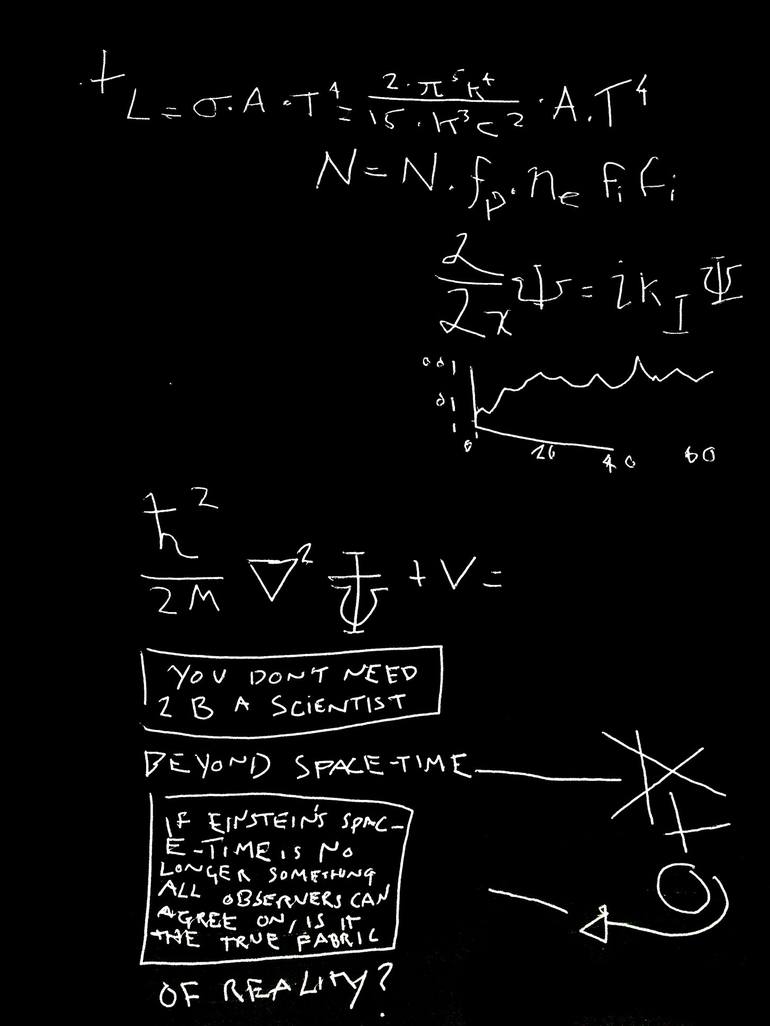 L = σ·A·T⁴ = 2·π⁵k⁴ / 15·K³c² · A.T⁴
N = N. fp. ne Fi Fi
2/2x Ψ = i k I Ψ
001
01
1
0 20 40 60
ħ² / 2M ∇² Ψ + V =
YOU DONT NEED
2 B A SCIENTIST
BEYOND SPACE-TIME
IF EINSTEIN'S SPAC-
E-TIME IS NO
LONGER SOMETHING
ALL OBSERVERS CAN
AGREE ON, IS IT
THE TRUE FABRIC
OF REALITY?